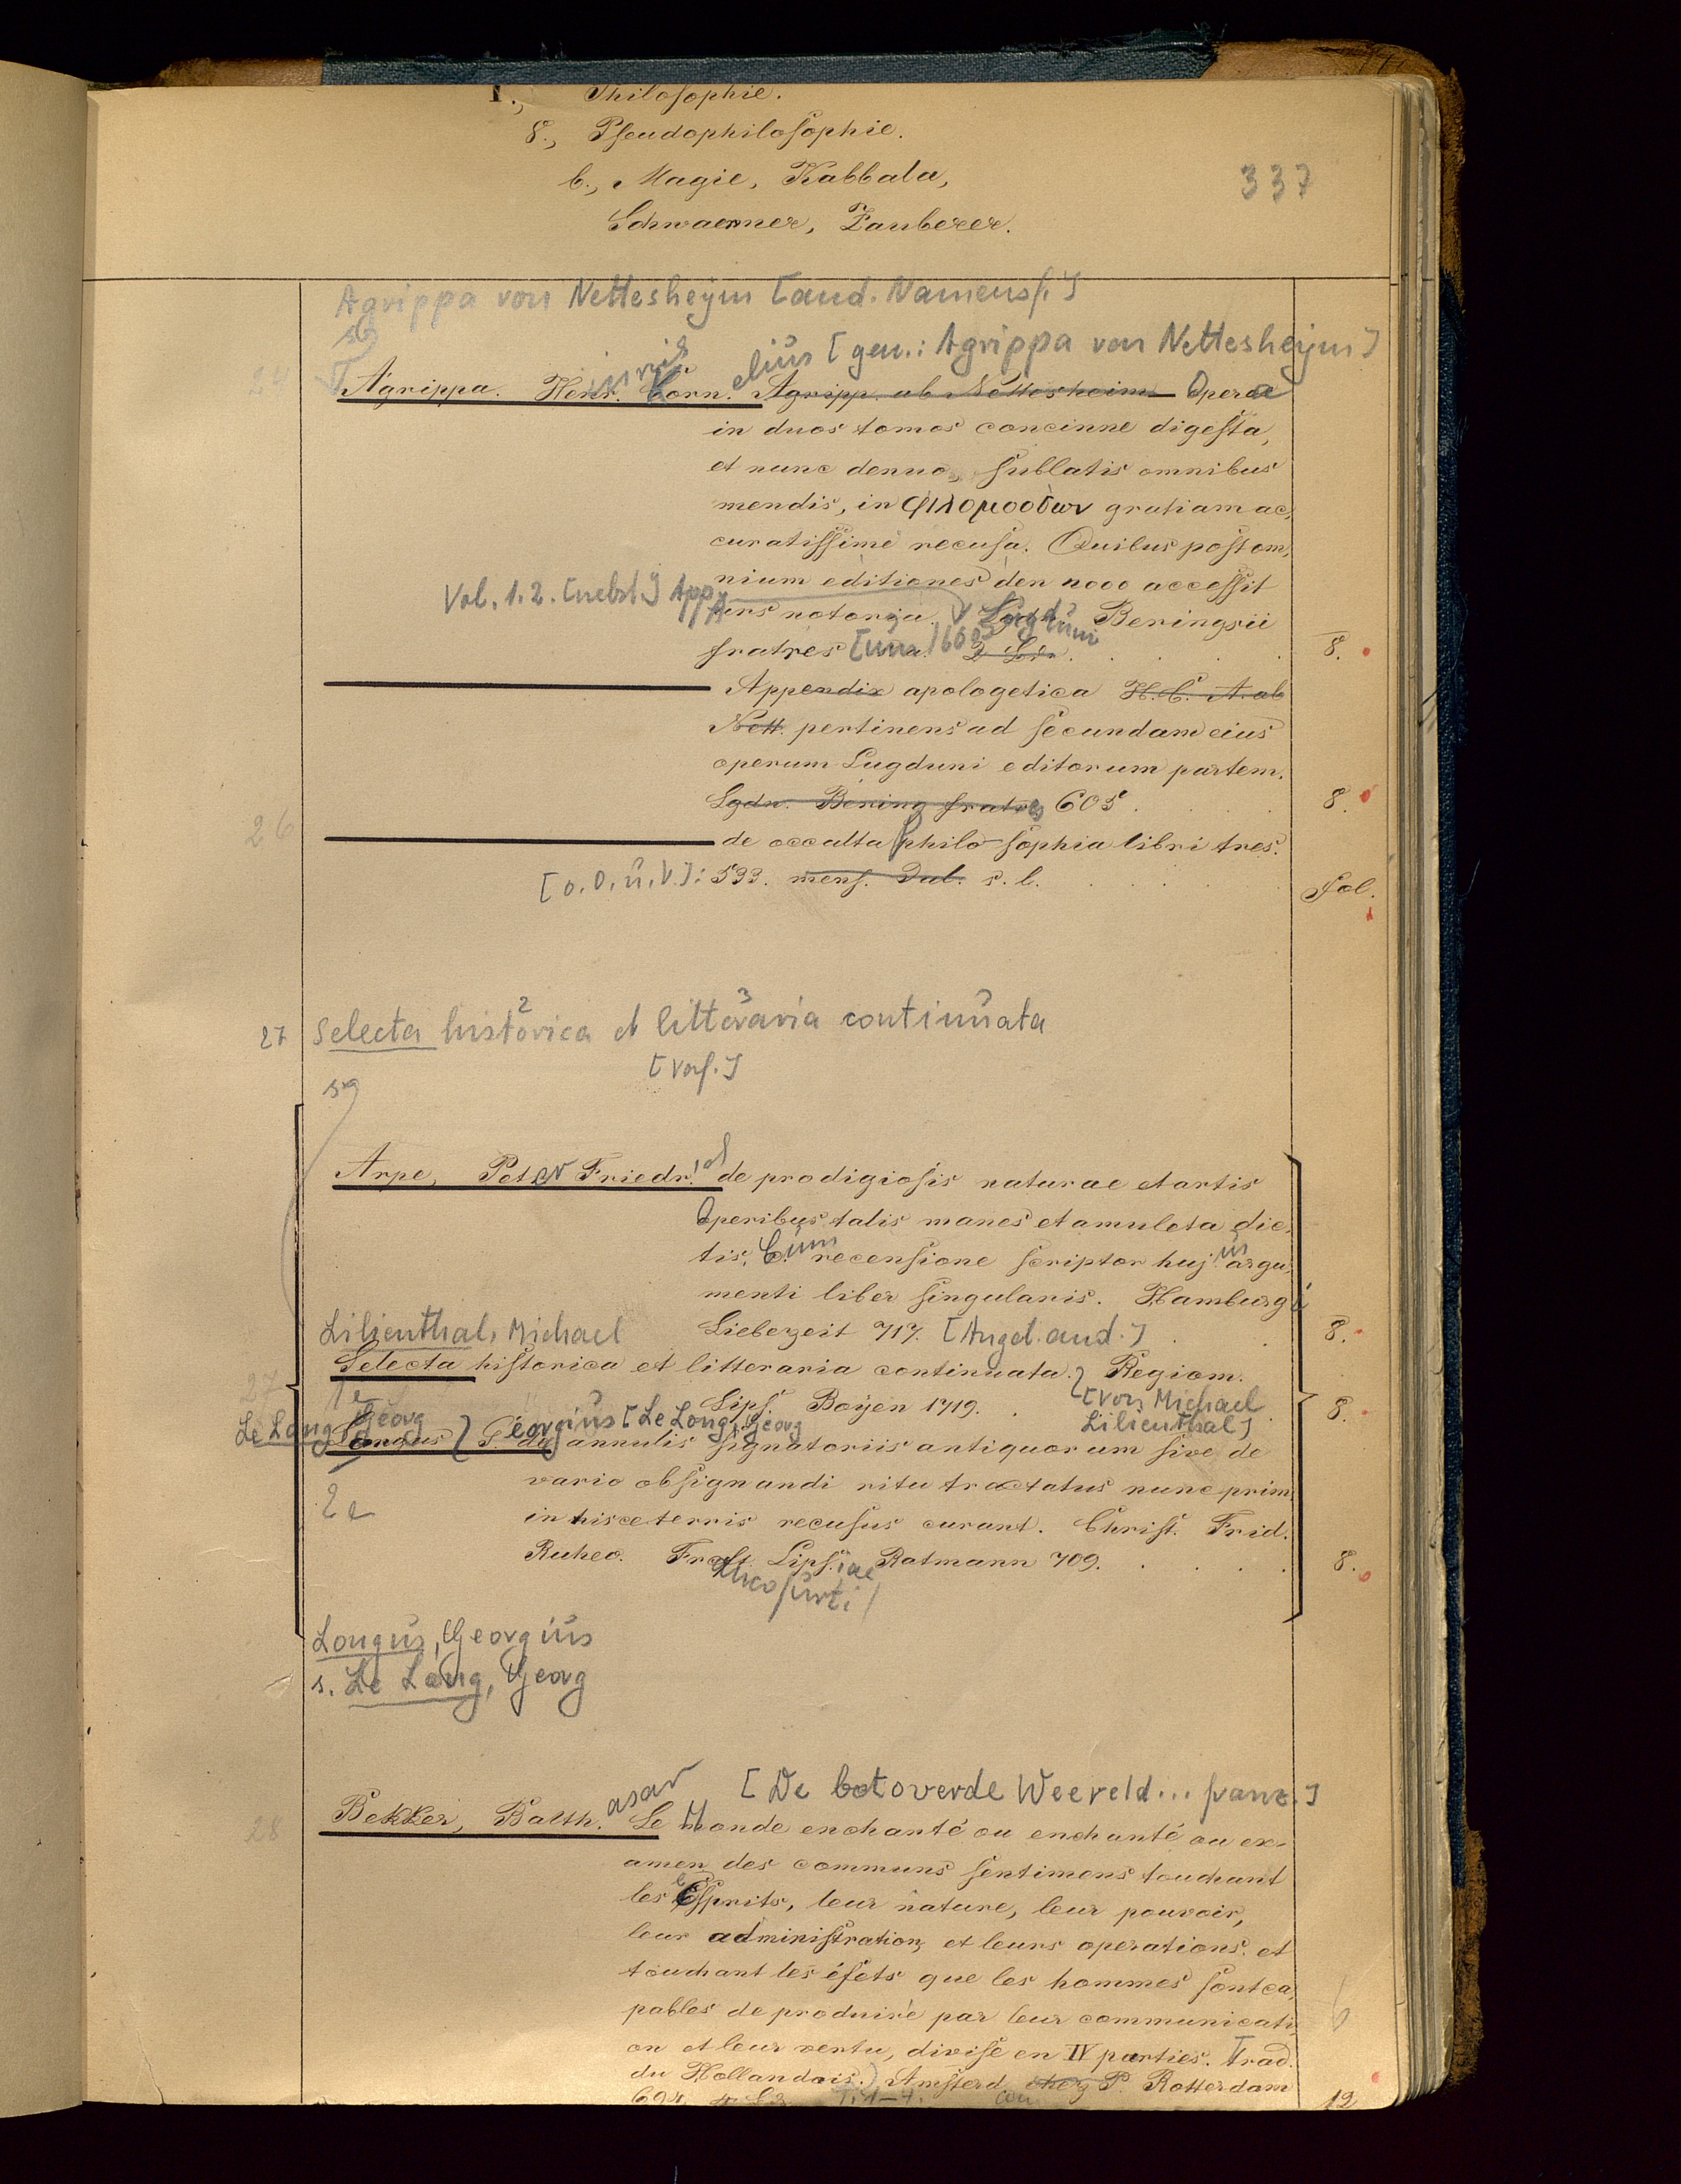 I., Philosophie.
8., Pseudophilosophie.
b., Magie, Kabbala,
Schwaermer, Zauberer.
337
Agrippa von Nettesheym [and. Namensf.]
elius [gen.: Agrippa von Nettesheym]
24 Agrippa. Henr. Corn. Agripp. ab Nettesheim Opera
in duos tomos concinne digesta,
et nunc denuo, sublatis omnibus
mendis, in φιλομουσων gratiam ac,
curatissime recusa. Quibus post om,
nium editiones den nooo accessit
Vol. 1. 2. [nebst] App.
ars notoria. Lugduni Beringsii
fratres [um 1605] 8.
Appendix apologetica H. C. A. ab
Nett. pertinens ad secundam eius
operum Lugduni editorum partem.
Lgdn. Bering fratres 605. 8.
26 de occulta philo-sophia libri tres.
[o. O. u. V.]: 533. mens. Jul. s. l. Fol.
27 Selecta historica et litteraria continuata
2 3
[Verf.]
Arpe, Peter Friedr. de prodigiosis naturae et artis
Operibus talis manes et amuleta dic,
tis. Cum recensione scriptor huj. argu,
menti liber singularis. Hamburgi
Liebezeit 717. [Angel. and.] 8.
Lilienthal, Michael
27 Selecta historica et litteraria continuata. Regiom.
Lips. Boyen 1719. 8.
[von Michael
Lilienthal]
Le Long, Georg
Longus G eorgius [Le Long, Georg
de annulis signatoriis antiquorum sive de
vario obsignandi ritu tractatus nunc prim,
in hisce terris recusus curant. Christ. Frid.
Ruheo. Lipsiae Ratmann 709. 8.
ancofurti
Longus, Georgius
s. Le Long, Georg
[De betoverde Weereld... franz.]
28 Bekker, Balth.asar Le Monde enchanté ou enchanté ou ex-
amen des communs sentimens touchant
les Esprits, leur nature, leur pouvoir,
leur administration, et leurs operations. et
touchant les éfets que les hommes sont ca,
pables de produire par leur communicati,
on et leur vertu, divisé en IV parties. Trad.
du Hollandois.) Amsterd. chez P. Rotterdam
694. 12